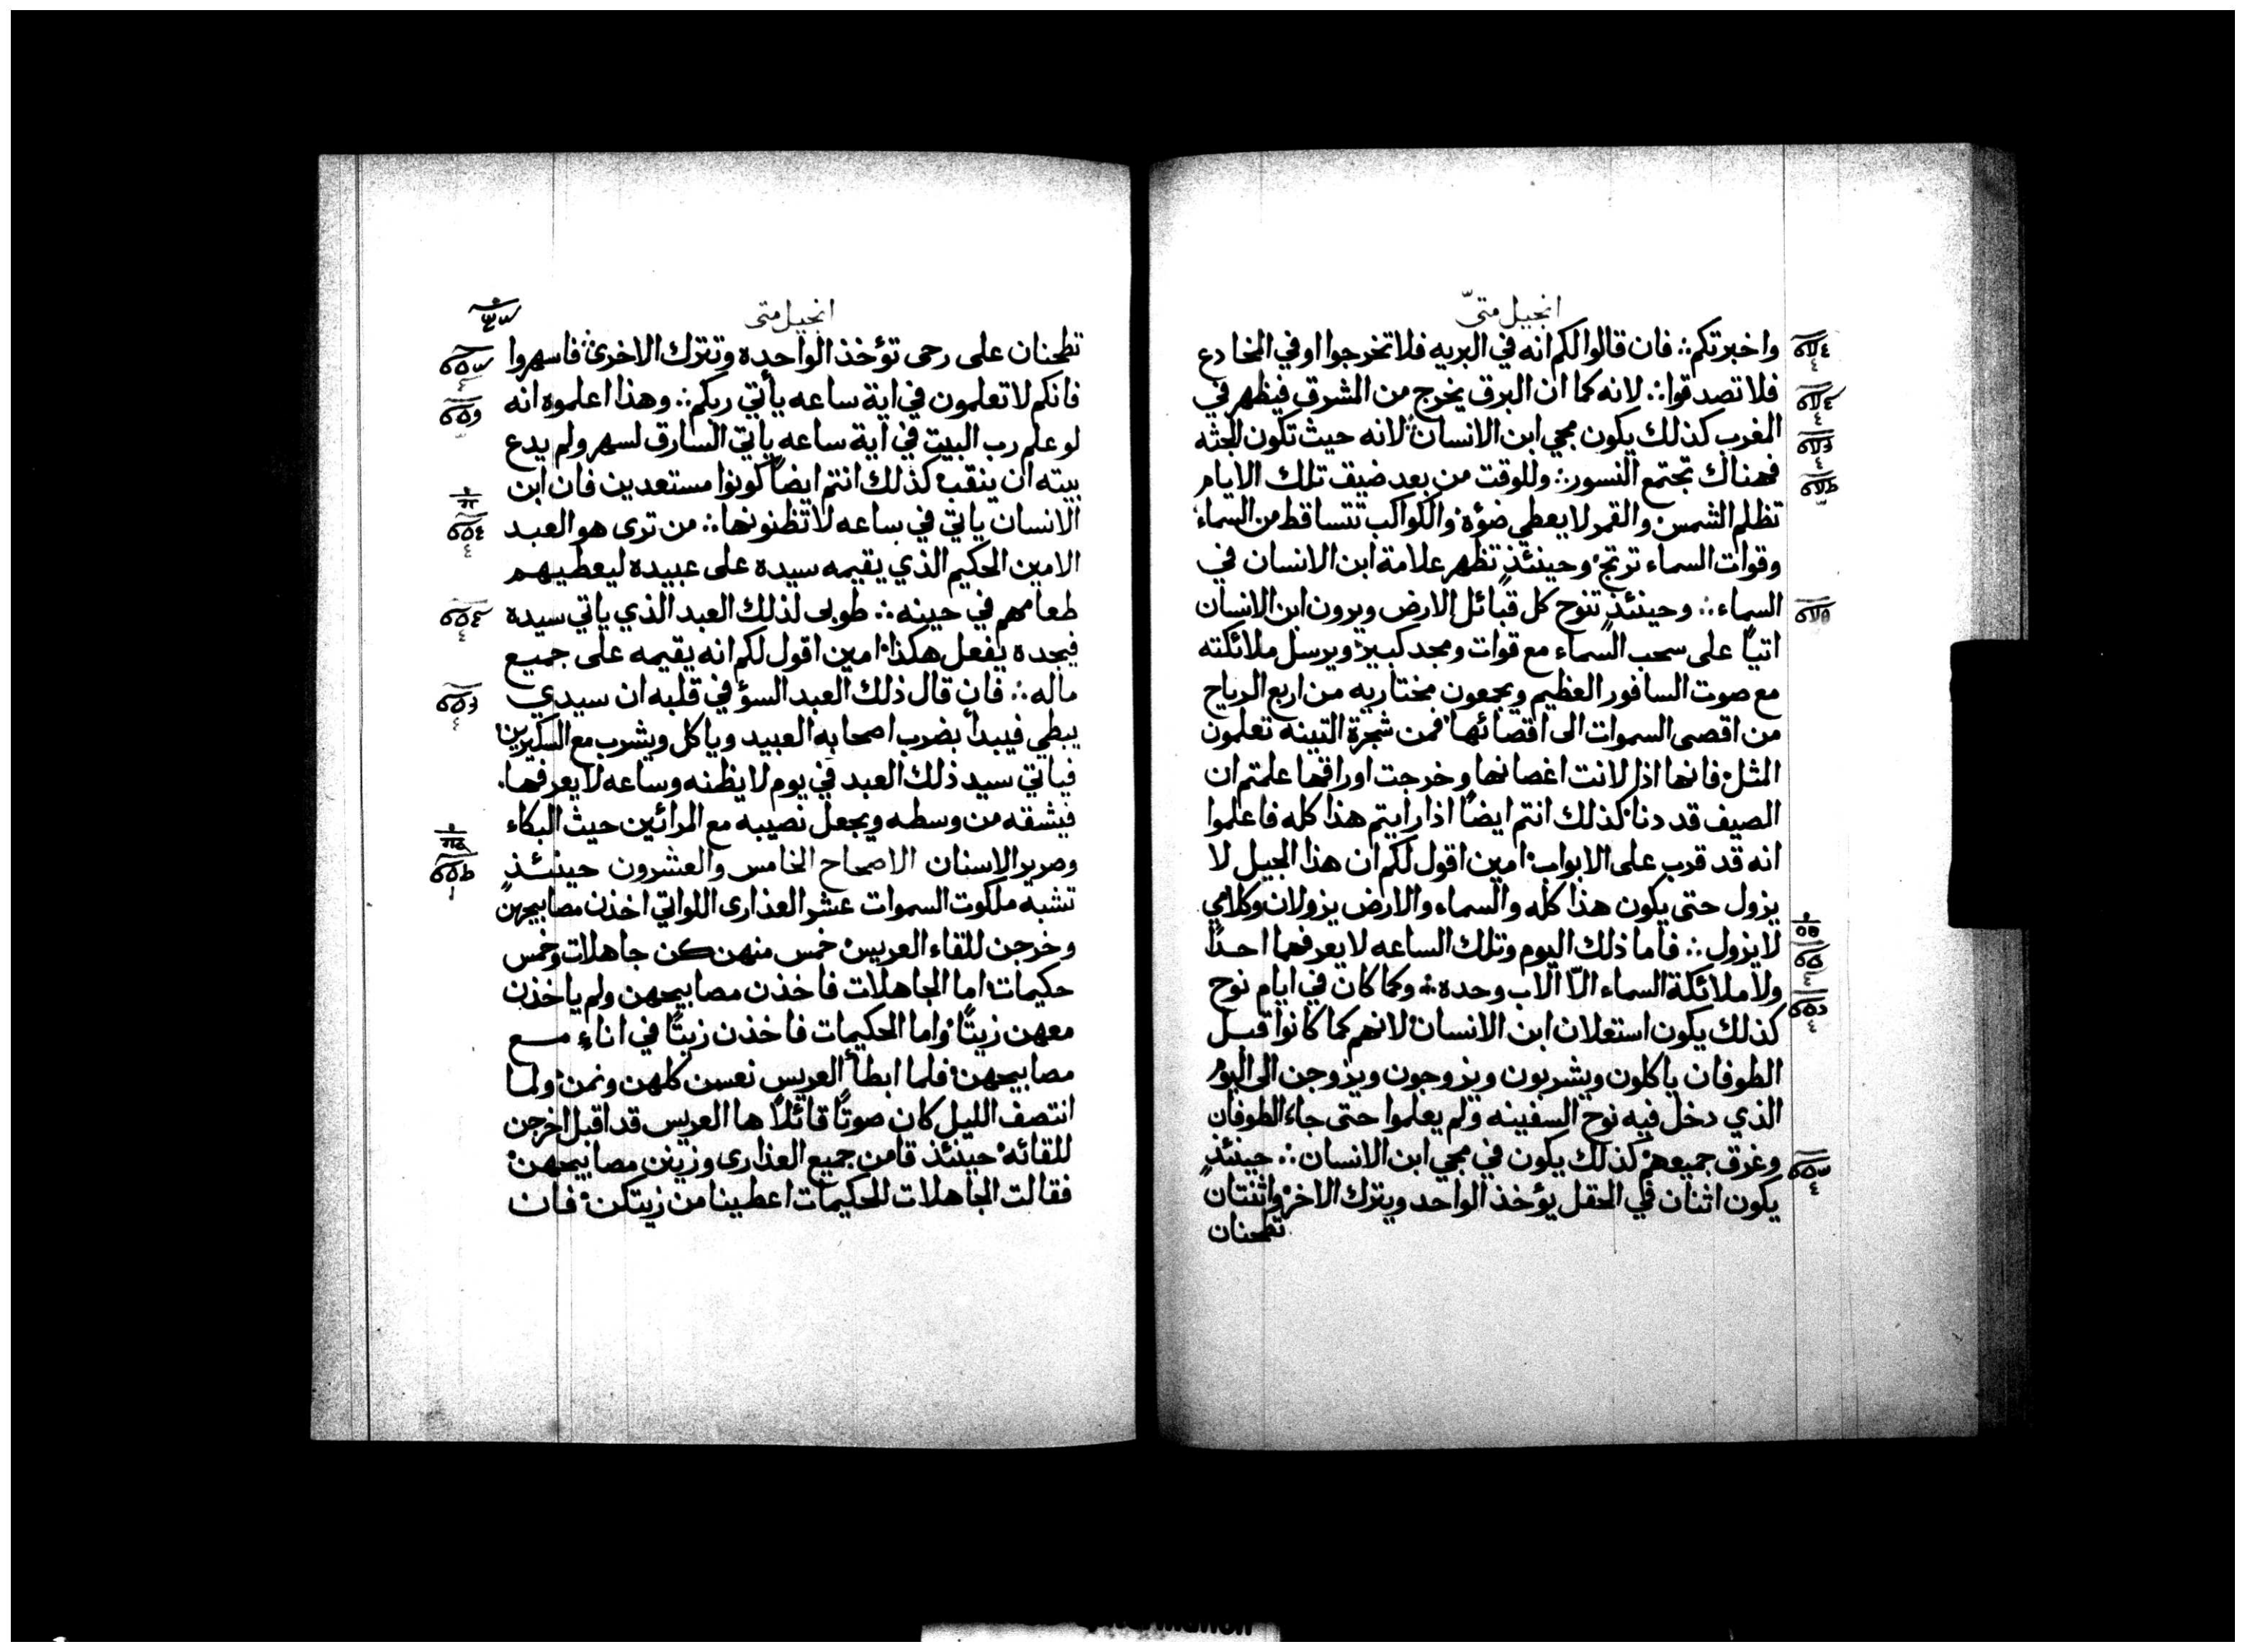 انجيل متىّ
واخبرتكم ∴ فان قالوا لكم انه في البريه فلا تخرجوا او في المخادع
فلا تصدقوا ∴ لانه كما ان البرق يخرج من المشرق فيظهر في
المغرب كذلك يكون مجي ابن الانسان لانه حيث تكون الجثه
فهناك تجتمع النسور ∴ وللوقت من بعد ضيف تلك الايام
تظلم الشمس والقمر لا يعطي ضوّه والكواكب تتساقط من السماء
وقوات السماء ترتج وحينئذٍ تظهر علامة ابن الانسان في
السماء ∴ وحينئذٍ تنوح كل قبائل الارض ويرون ابن الانسان
اتيًا على سحب السماء مع قوات ومجد كبير ويرسل ملائكته
مع صوت السافور العظيم ويجمعون مختاريه من اربع الرياح
من اقصى السموات الى اقصائها فمن شجرة التينه تعلمون
المثل فانها اذا لانت اغصانها وخرجت اوراقها علمتم ان
الصيف قد دنا كذلك انتم ايضًا اذا رايتم هذا كله فاعلموا
انه قد قرب على الابواب امين اقول لكم ان هذا الجيل لا
يزول حتى يكون هذا كله والسماء والارض يزولان وكلامي
لا يزول ∴ فاما ذلك اليوم وتلك الساعه لا يعرفهما احدًا
ولا ملائكة السماء الاّ الاب وحده ∴ وكما كان في ايام نوح
كذلك يكون استعلان ابن الانسان لانهم كما كانوا قبل
الطوفان ياكلون ويشربون ويزوجون ويزوجن الى اليوم
الذي دخل فيه نوح السفينه ولم يعلموا حتى جاء الطوفان
وغرق جميعهم كذلك يكون في مجي ابن الانسان ∴ حينئذٍ
يكون اثنان في الحقل يؤخذ الواحد ويترك الاخر واثنتان
تطحنان
انجيل متى
تطحنان على رحى تؤخذ الواحده وتترك الاخرى فاسهروا
فانكم لا تعلمون في اية ساعه يأتي ربكم ∴ وهذا اعلموه انه
لو علم رب البيت في اية ساعه ياتي السارق لسهر ولم يدع
بيته ان ينقب كذلك انتم ايضًا كونوا مستعدين فان ابن
الانسان ياتي في ساعه لا تظنونها ∴ من ترى هو العبد
الامين الحكيم الذي يقيمه سيده على عبيده ليعطيهم
طعامهم في حينه ∴ طوبى لذلك العبد الذي ياتي سيده
فيجده يفعل هكذا امين اقول لكم انه يقيمه على جميع
ماله ∴ فان قال ذلك العبد السؤ في قلبه ان سيدي
يبطي فيبدأ بضرب اصحابه العبيد وياكل ويشرب مع السكيرين
فياتي سيد ذلك العبد في يوم لا يظنه وساعه لا يعرفها.
فيشقه من وسطه ويجعل نصيبه مع المرائين حيث البكاء
وصرير الاسنان الاصحاح الخامس والعشرون حينئذٍ
تشبه ملكوت السموات عشر العذارى اللواتي اخذن مصابيحهن
وخرجن للقاء العريس خمس منهن كن جاهلات وخمس
حكيمات اما الجاهلات فاخذن مصابيحهن ولم ياخذن
معهن زيتًا واما الحكيمات فاخذن زيتًا في اناء مع
مصابيحهن فلما ابطأ العريس نعسن كلهن ونمن ولما
انتصف الليل كان صوتًا قائلاً ها العريس قد اقبل اخرجن
للقائه حينئذ قامن جميع العذارى وزينن مصابيحهن
فقالت الجاهلات للحكيمات اعطينا من زيتكن فان